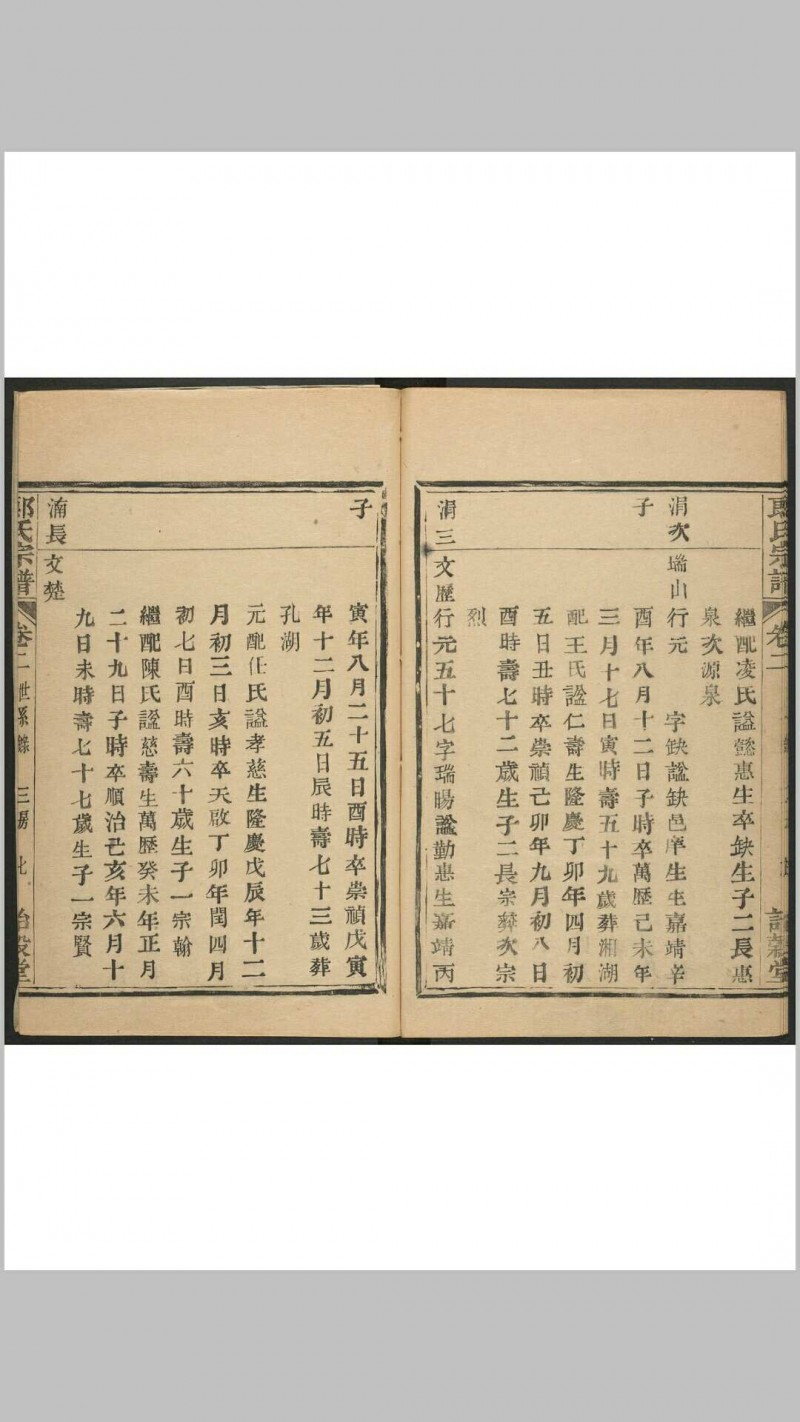 氏宗譜 卷二
繼配凌氏謚懿惠生卒缺生子二長惠
泉次源泉
涓次子 瑞山行元 字缺謚缺邑庠生生嘉靖辛
酉年八月十二日子時卒萬歷己未年
三月十七日寅時壽五十九歲葬湘湖
配王氏謚仁壽生隆慶丁卯年四月初
五日丑時卒崇禎己卯年九月初八日
酉時壽七十二歲生子二長宗彝次宗
烈
涓三 文歷行元五十七字瑞暘謚勤惠生嘉靖丙
子 寅年八月二十五日酉時卒崇禎戊寅
年十二月初五日辰時壽七十三歲葬
孔湖
元配任氏謚孝慈生隆慶戊辰年十二
月初三日亥時卒天啟丁卯年閏四月
初七日酉時壽六十歲生子一宗翰
繼配陳氏謚慈壽生萬歷癸未年正月
二十九日子時卒順治己亥年六月十
九日未時壽七十七歲生子一宗賢
湳長 文楚
氏宗譜 卷二 世系錄 三房 七